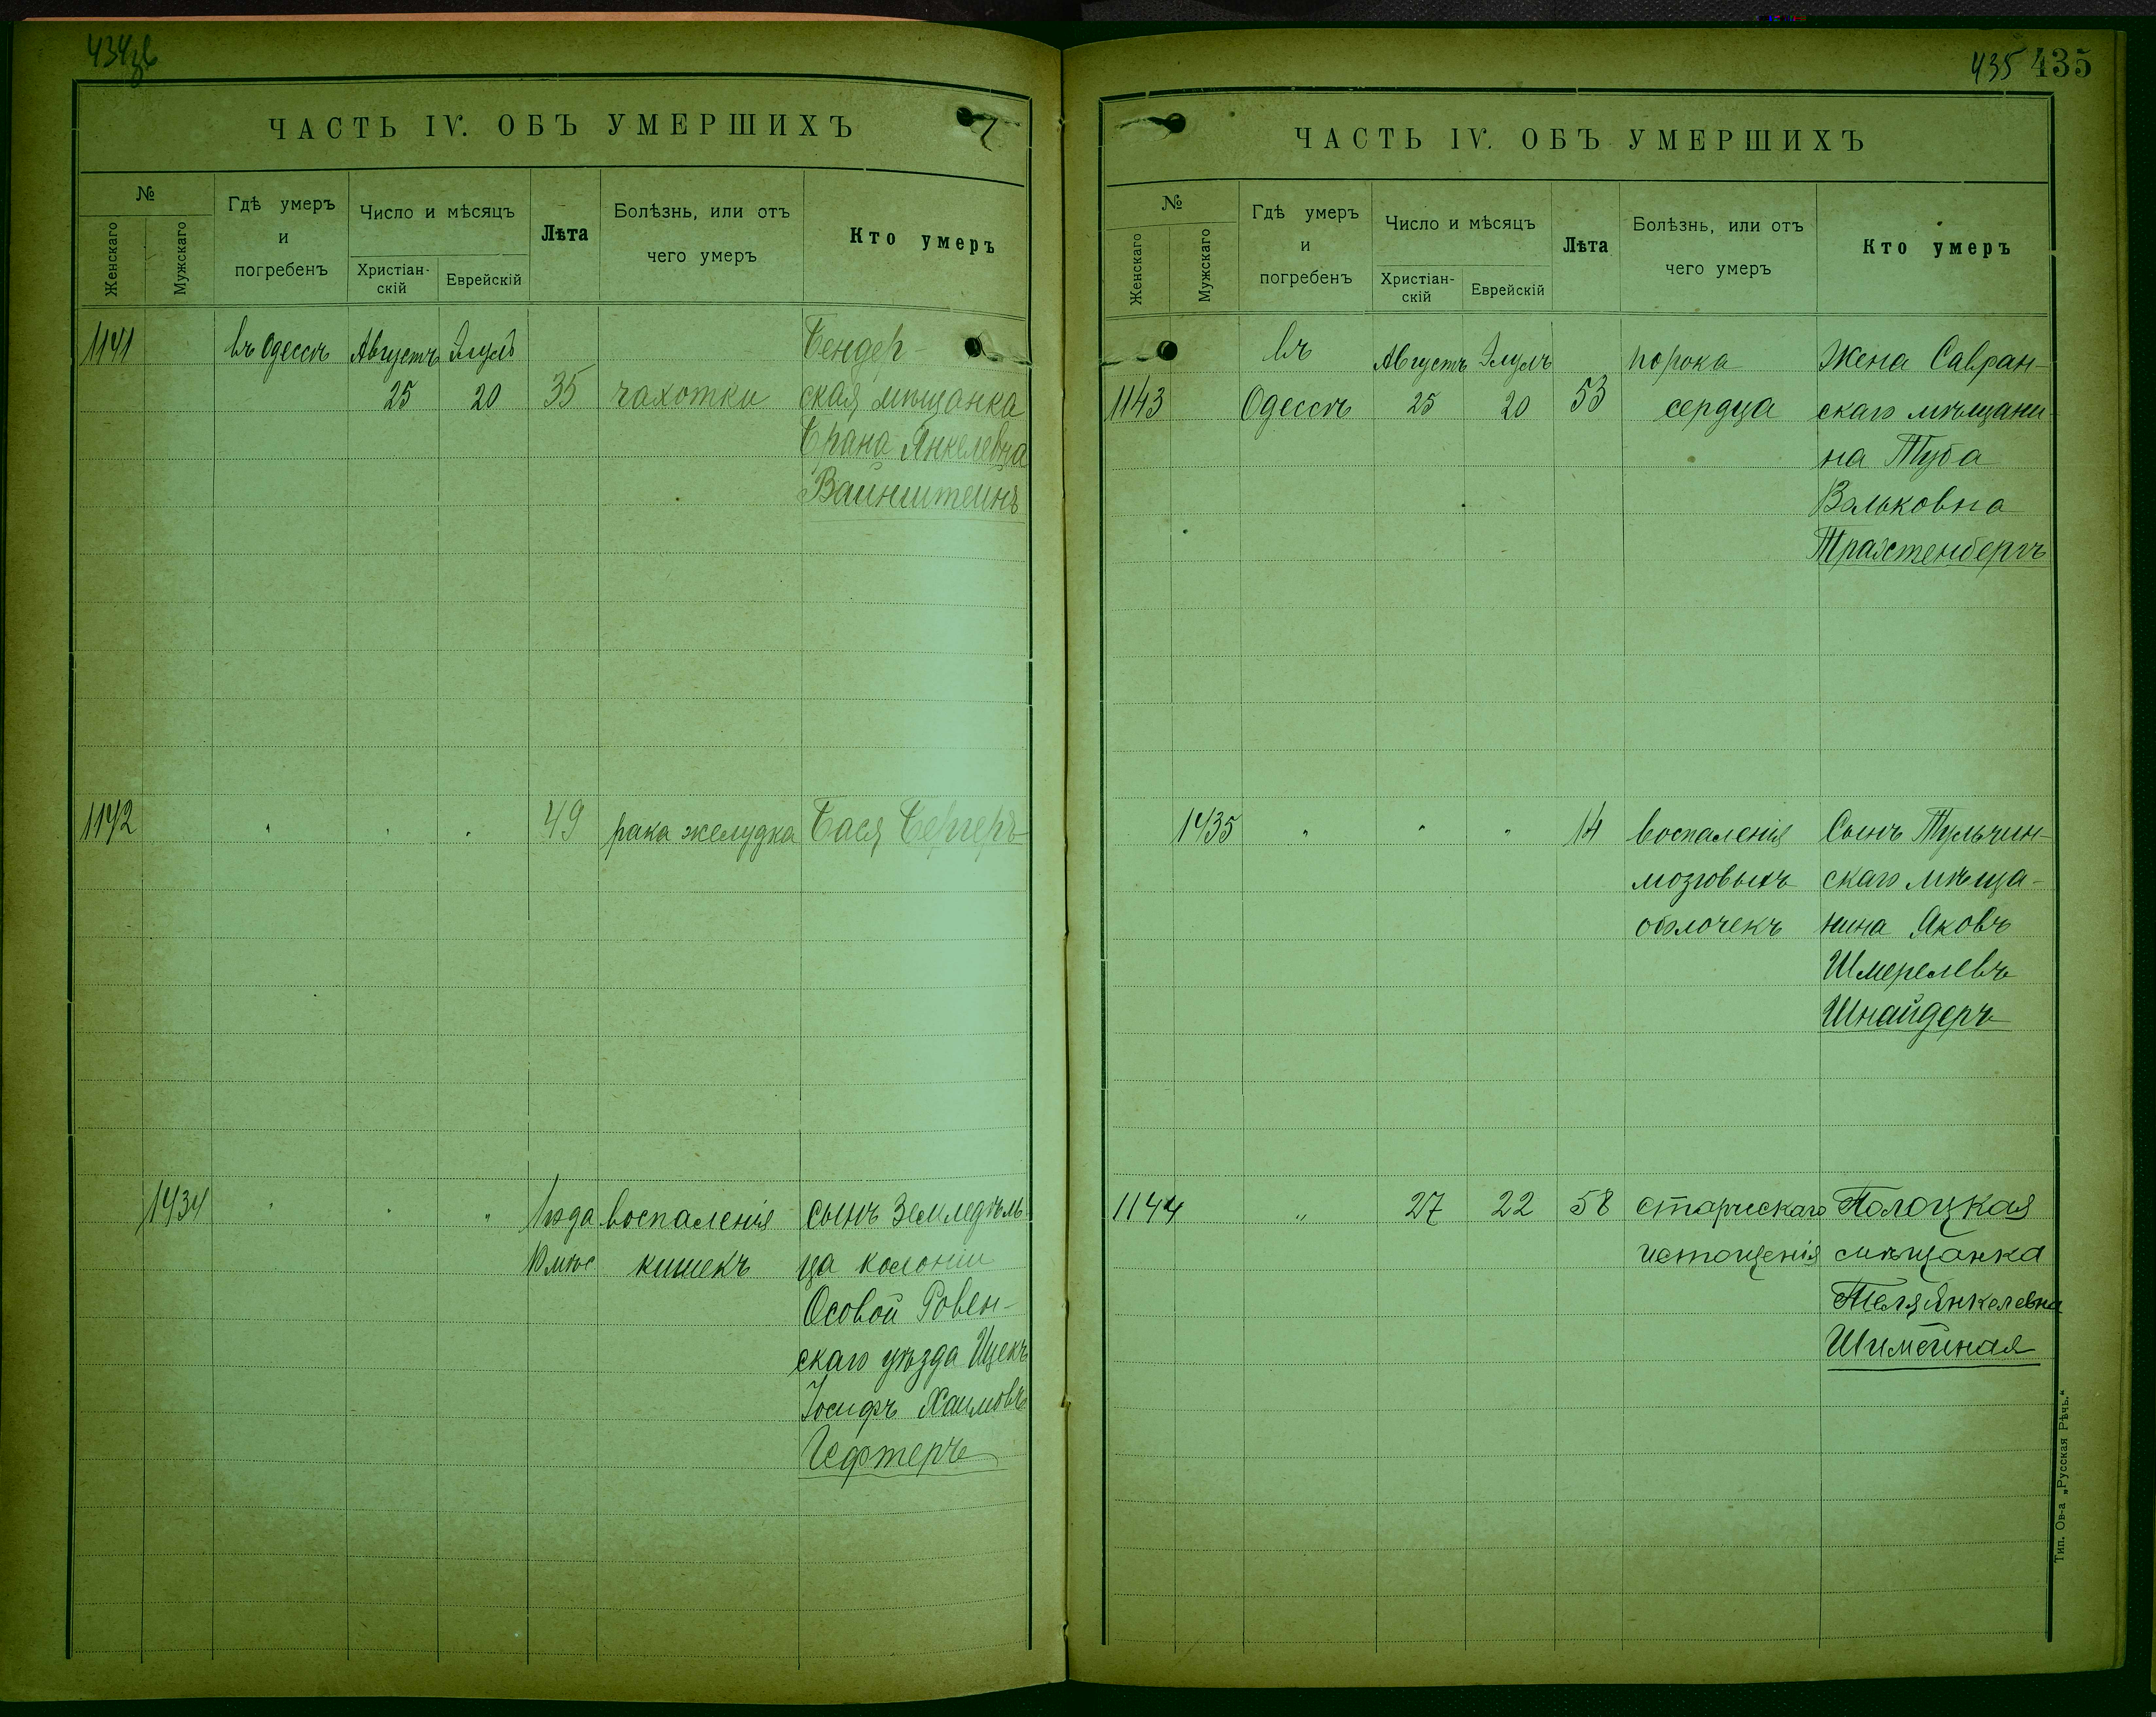 434 об
ЧАСТЬ IV. ОБЪ УМЕРШИХЪ
№
Женскаго
Мужскаго
Гдѣ умеръ
и
погребенъ
Число и мѣсяцъ
Христіан-
скій
Еврейскій
Лѣта
Болѣзнь, или отъ
чего умеръ
Кто умеръ
1141 въ Одессѣ Августъ Элулъ Бендер-
25 20 35 чахотки ская мѣщанка
Брана Янкелевна
Вайнштейнъ
1142 " " " 49 рака желудка Бася Бергеръ
1434 " " " 1 года воспаленія сынъ Земледѣль-
10 мѣс кишекъ ца колоніи
Осовой Ровен-
скаго уѣзда Ицекъ
Іосифъ Хаимовъ
Гефтеръ
435 435
ЧАСТЬ IV. ОБЪ УМЕРШИХЪ
№
Женскаго
Мужскаго
Гдѣ умеръ
и
погребенъ
Число и мѣсяцъ
Христіан-
скій
Еврейскій
Лѣта
Болѣзнь, или отъ
чего умеръ
Кто умеръ
въ Августъ Элулъ порока Жена Савран-
1143 Одессѣ 25 20 53 сердца скаго мѣщани-
на Туба
Вольковна
Трахтенбергъ
1435 " " " 14 воспаленія Сынъ Тульчин-
мозговыхъ скаго мѣща-
оболочекъ нина Яковъ
Шмерелевъ
Шнайдеръ
1144 " 27 22 58 старческаго Полоцкая
истощенія мѣщанка
Янкелевна
Тип. Ов-а „Русская Рѣчь.“